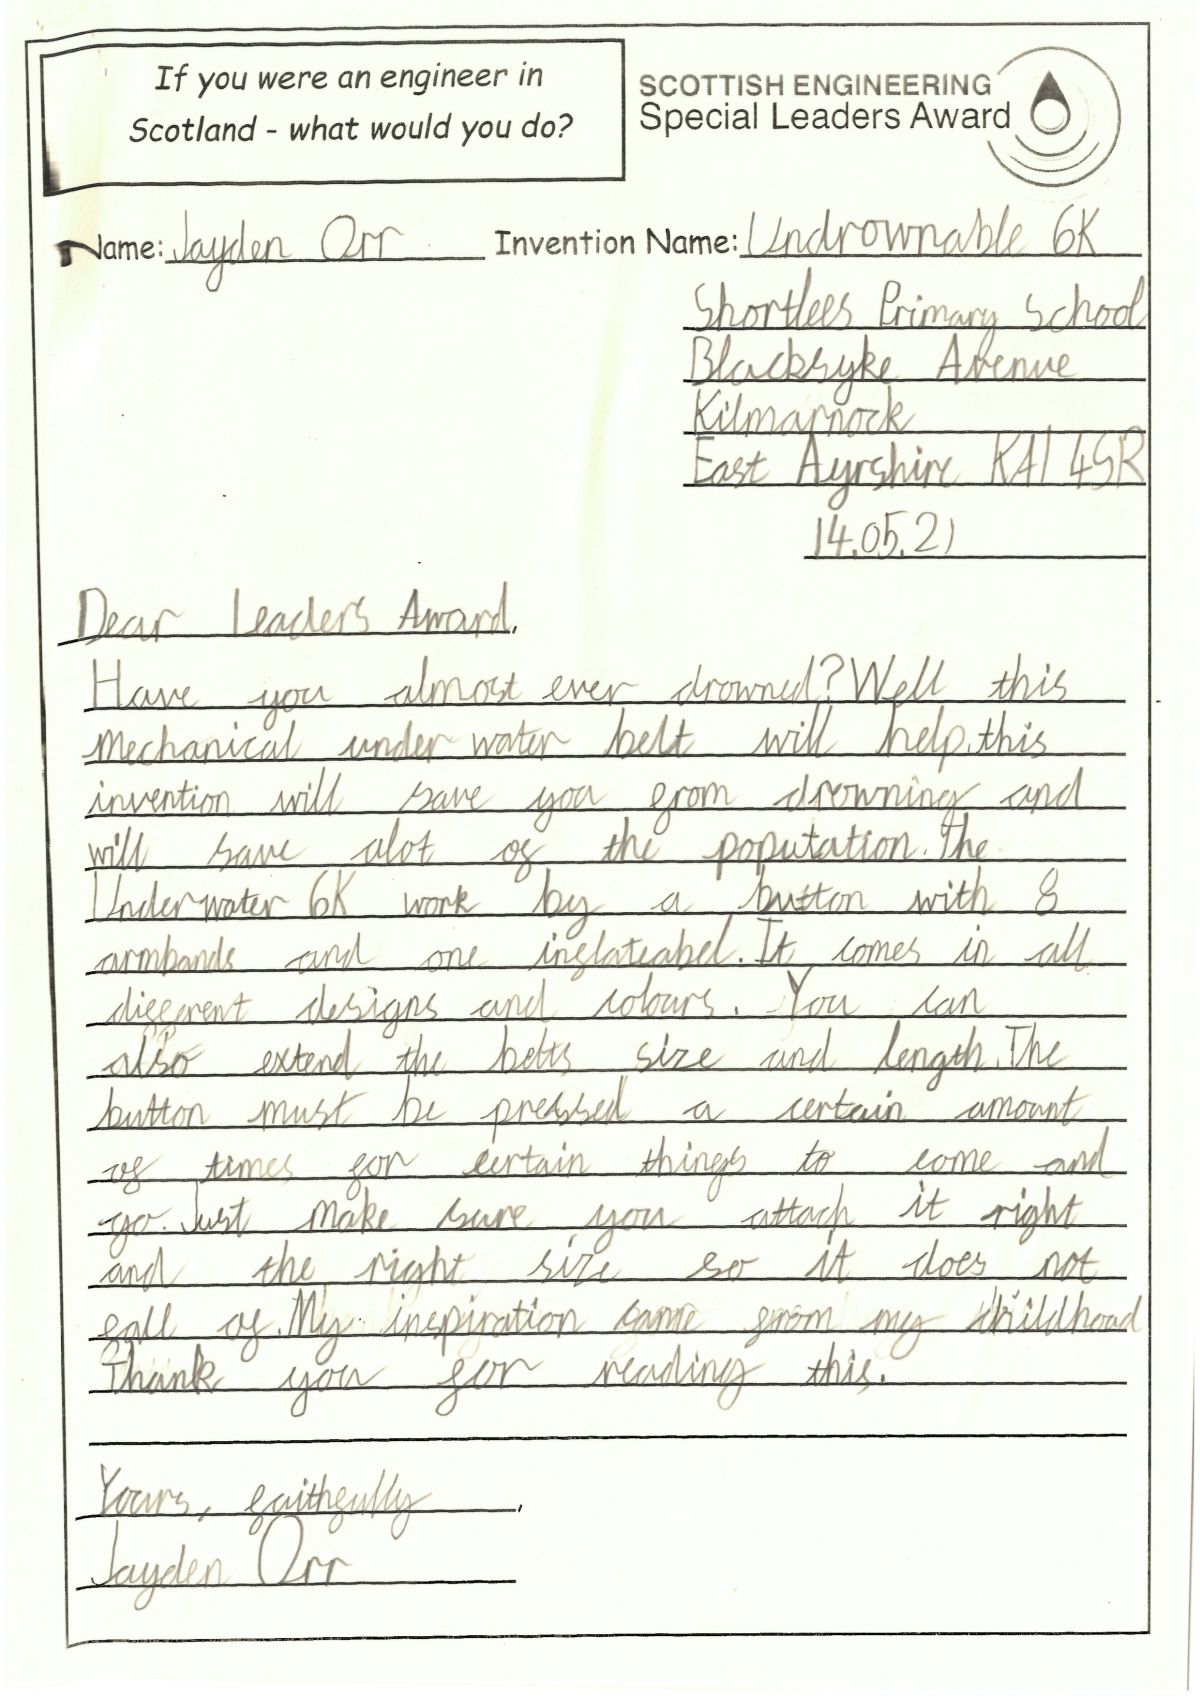 If you were an engineer in
Scotland - what would you do?
SCOTTISH ENGINEERING
Special Leaders Award
Name: Jayden Orr Invention Name: Undrownable 6K
Shortlees Primary School
Blacksyke Avenue
Kilmarnock
East Ayrshire KA1 4SR
14.05.21
Dear Leaders Award,
Have you almost ever drowned? Well this
mechanical under water belt will help.this
invention will save you from drowning and
will save alot of the poputation. The
Underwater 6K work by a button with 8
armbands and one inflateabel. It comes in all
different designs and colours. You can
also extend the belts size and length. The
button must be pressed a certain amount
of times for certain things to come and
go. Just make sure you attach it right
and the right size so it does not
fall of. My inspiration came from my childhood
Thank you for reading this.
Yours, faithfully
Jayden Orr